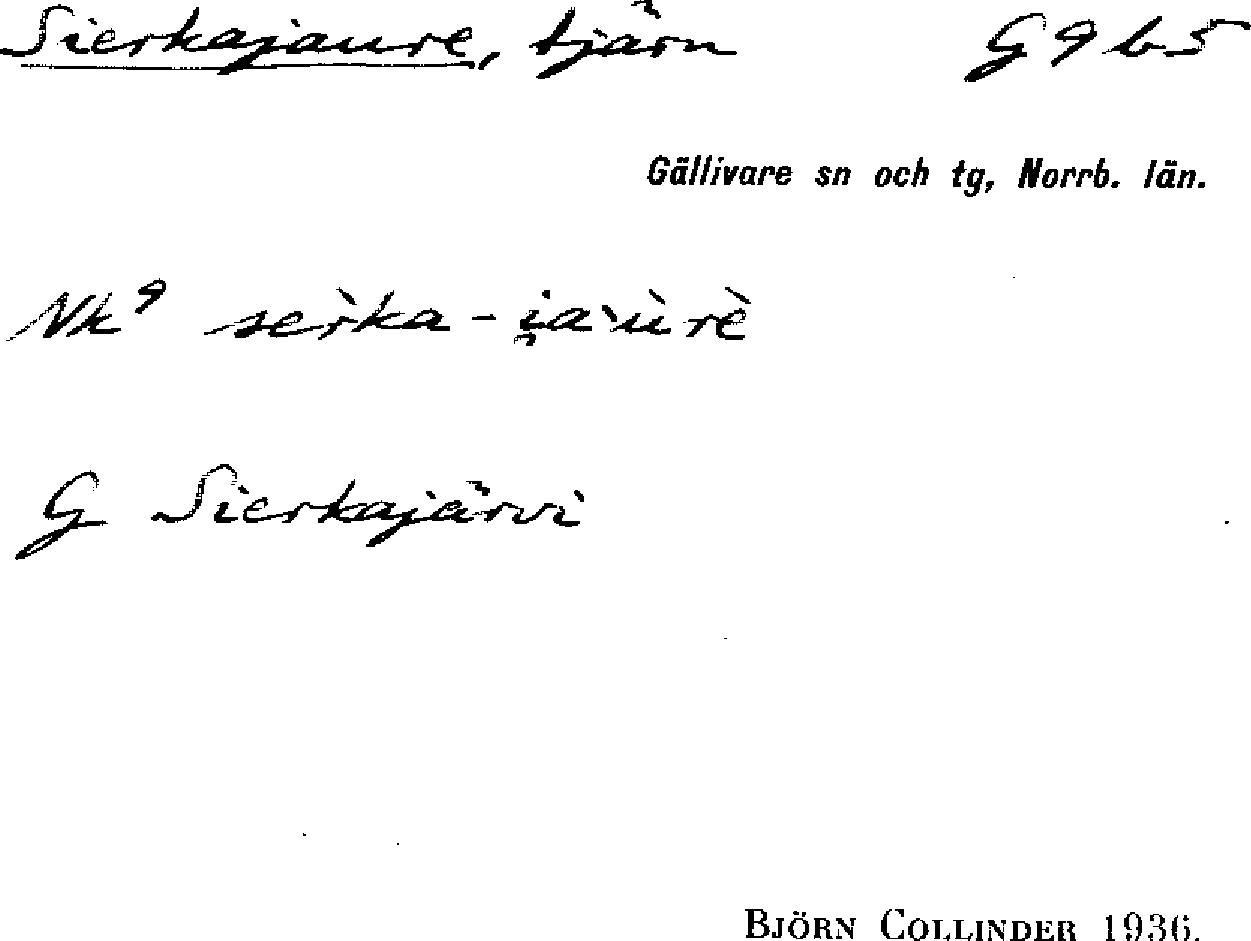 Sierkajaure, tjärn G 9 b 5
Gällivare sn och tg, Norrb. län.
Nk⁹ serka - i̯a'ùrè
G Sierkajärvi
BJÖRN COLLINDER 1936.